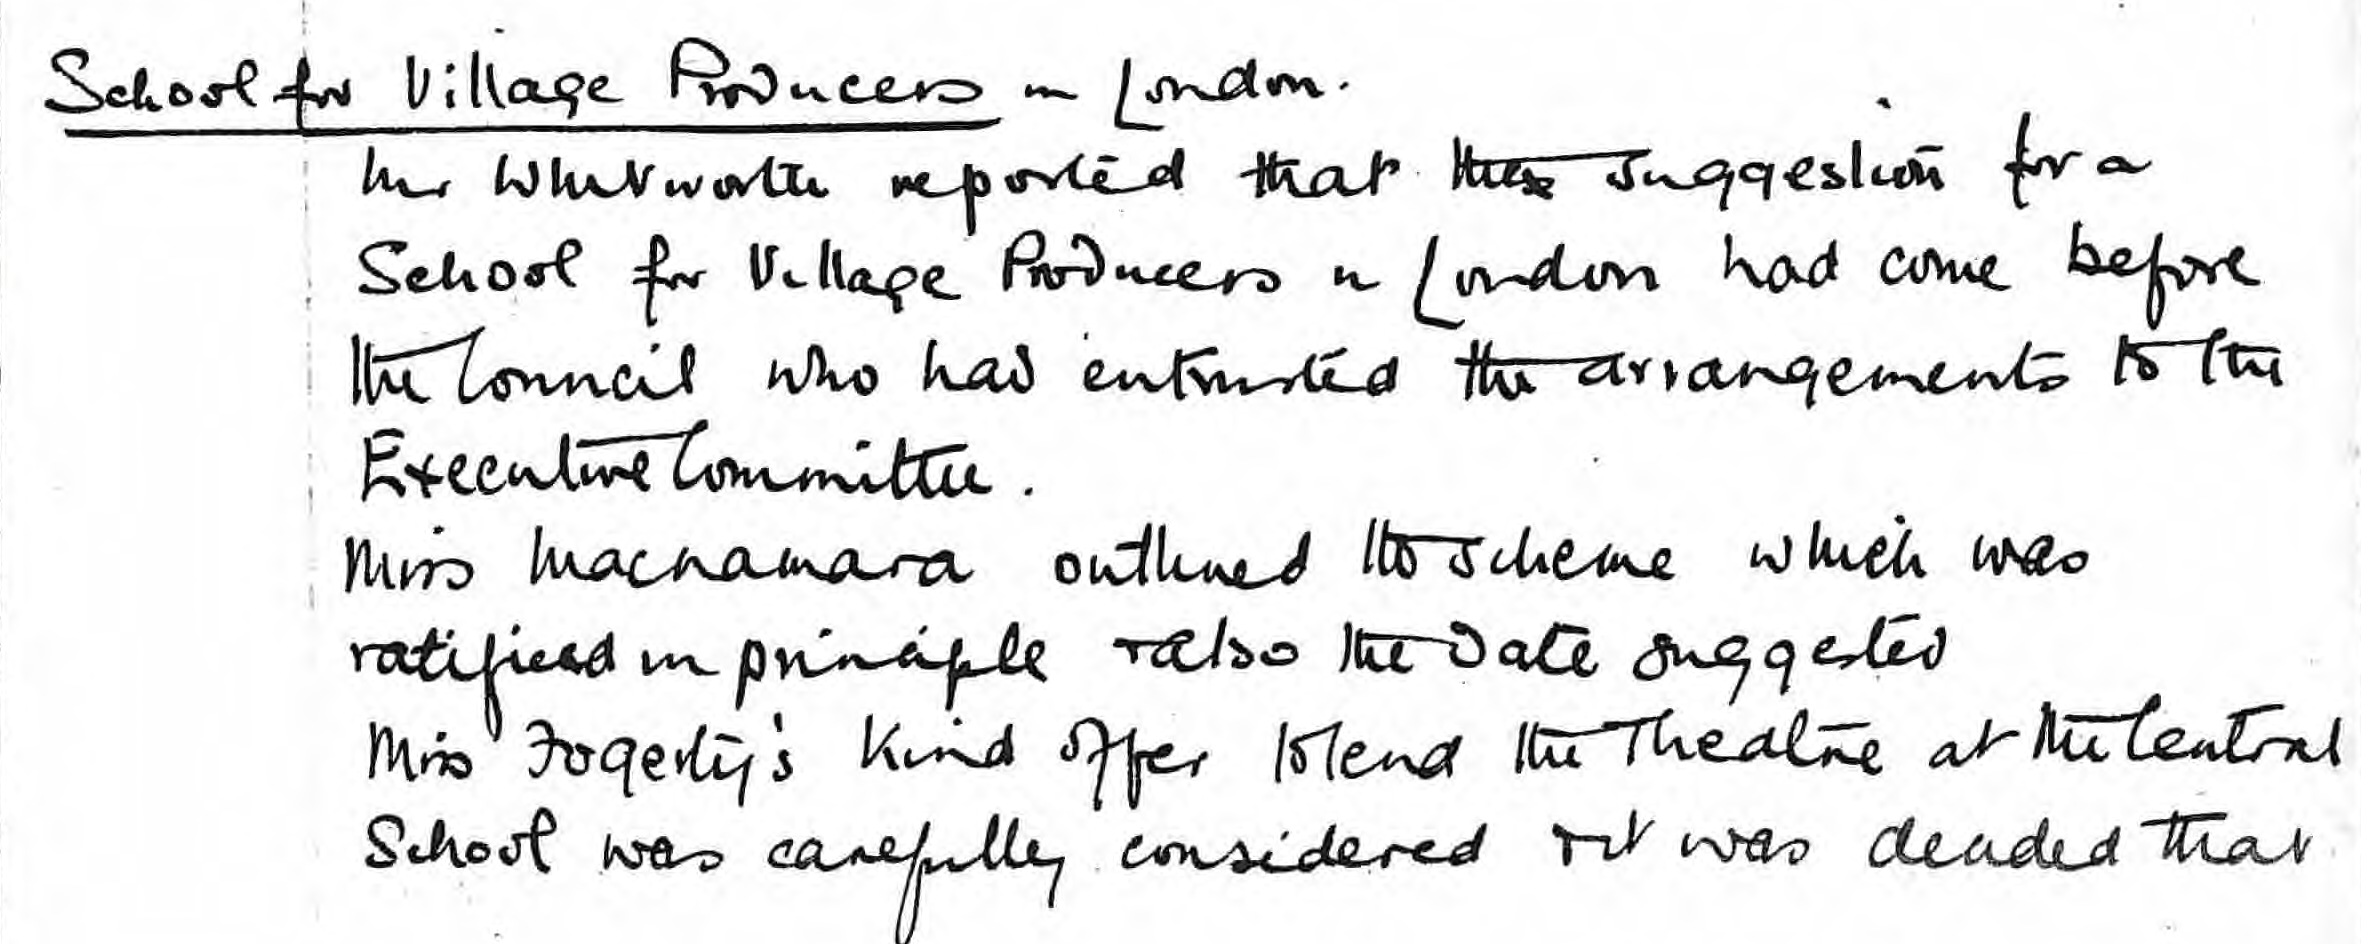 School for Village Producers in London.
Mr Whitworth reported that the suggestion for a
School for Village Producers in London had come before
the Council who had entrusted the arrangements to the
Executive Committee.
Miss Macnamara outlined the scheme which was
ratified in principle + also the date suggested
Miss Fogerty's kind offer to lend the Theatre at the Central
School was carefully considered + it was decided that